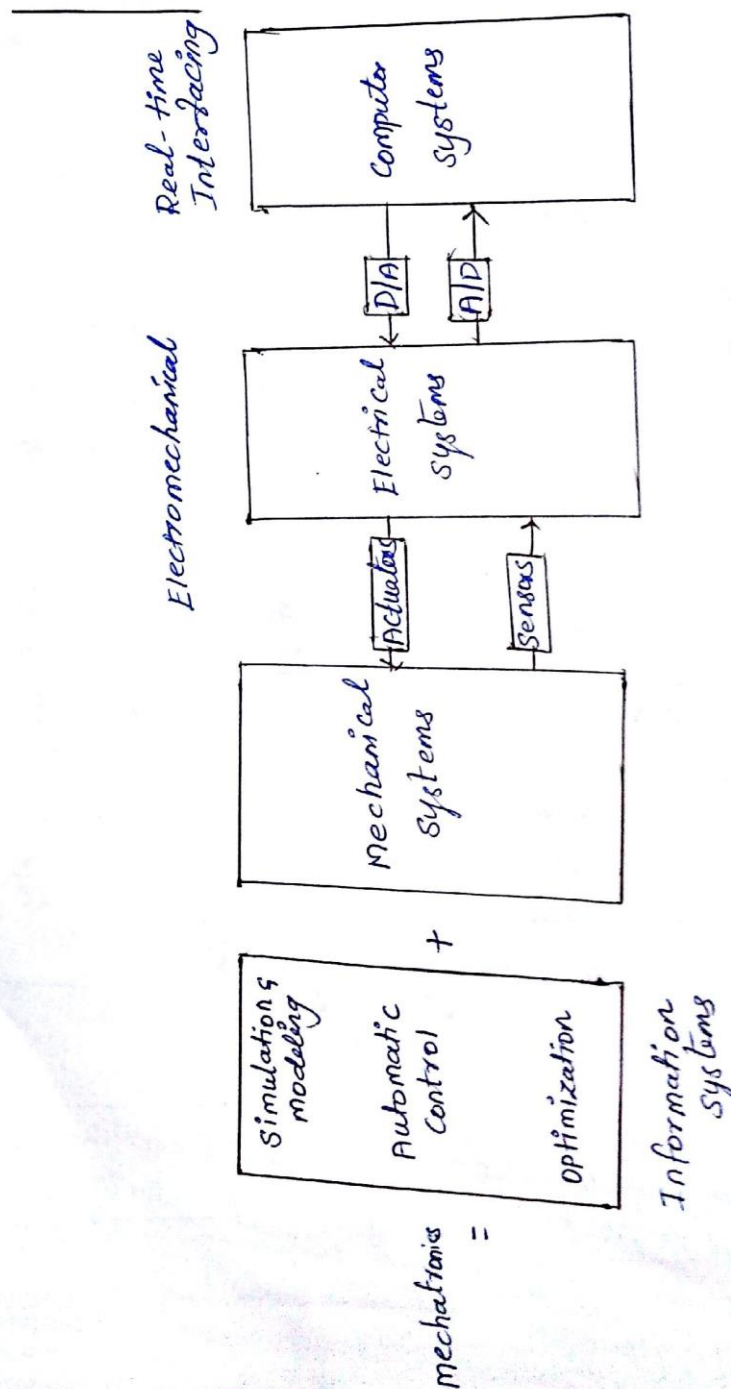 Mechatronics
=
Simulation &
modeling
Automatic
Control
Optimization
Information
Systems
+
Mechanical
Systems
Actuators
Sensors
Electromechanical
Electrical
Systems
D/A
A/D
Real-time
Interfacing
Computer
Systems